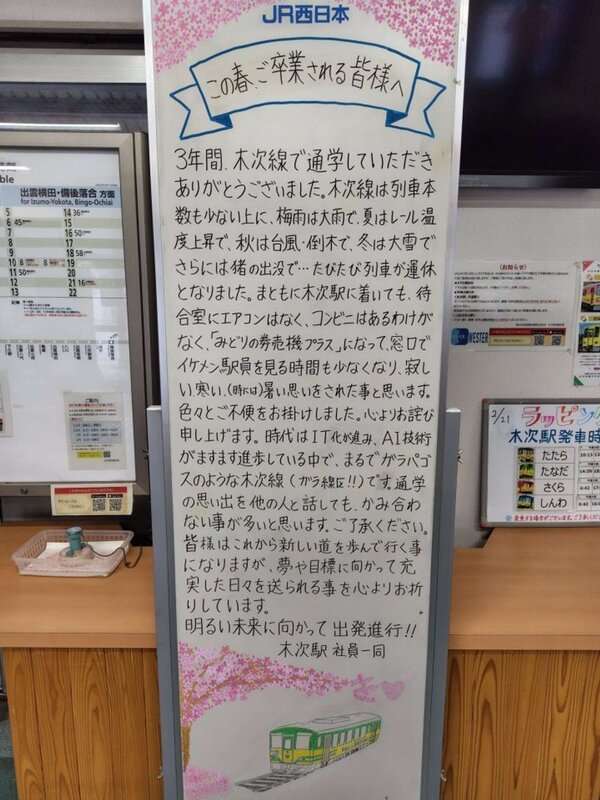 JR西日本
この春、ご卒業される皆様へ
3年間、木次線で通学していただき
ありがとうございました。木次線は列車本
数も少ない上に、梅雨は大雨で、夏はレール温
度上昇で、秋は台風・倒木で、冬は大雪で
さらには猪の出没で…たびたび列車が運休
となりました。まともに木次駅に着いても、待
合室にエアコンはなく、コンビニはあるわけが
なく、「みどりの券売機プラス」になって、窓口で
イケメン駅員を見る時間も少なくなり、寂し
い寒い、(時には)暑い思いをされた事と思います。
色々とご不便をお掛けしました。心よりお詫び
申し上げます。時代はIT化が進み、AI技術
がますます進歩している中で、まるでガラパゴ
スのような木次線(ガラ線!!)です。通学
の思い出を他の人と話しても、かみ合わ
ない事が多いと思います。ご了承ください。
皆様はこれから新しい道を歩んで行く事
になりますが、夢や目標に向かって充
実した日々を送られる事を心よりお祈
りしています。
明るい未来に向かって出発進行!!
木次駅 社員一同
出雲横田・備後落合 方面
for Izumo-Yokota, Bingo-Ochiai
5
6 45
7
8
9
10 8
11 50
12
13
14 36
15
16 50
17
18 58
19
20 8
21 16
22
ご案内
お知らせ
WESTER
2/21
ラッピン
木次駅発車時
たたら
たなだ
さくら
しんわ